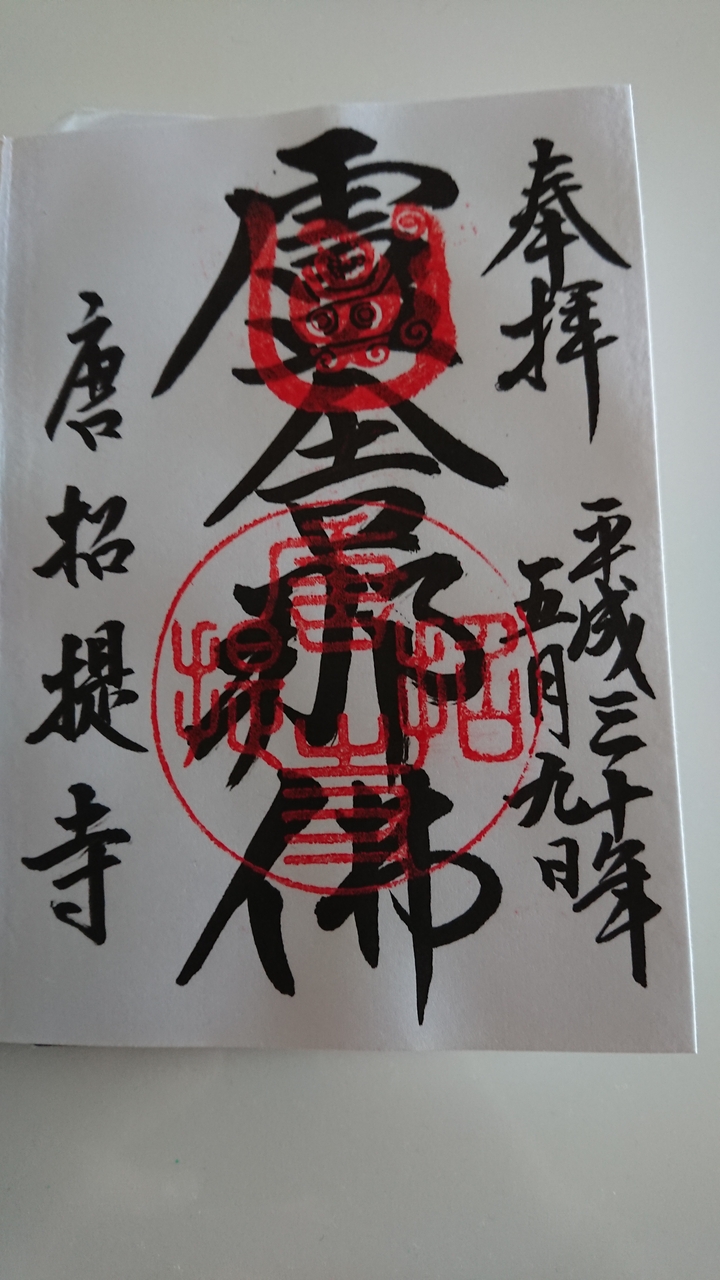 奉拝
平成三十年
五月九日
盧舎那佛
唐招提寺
唐招提寺